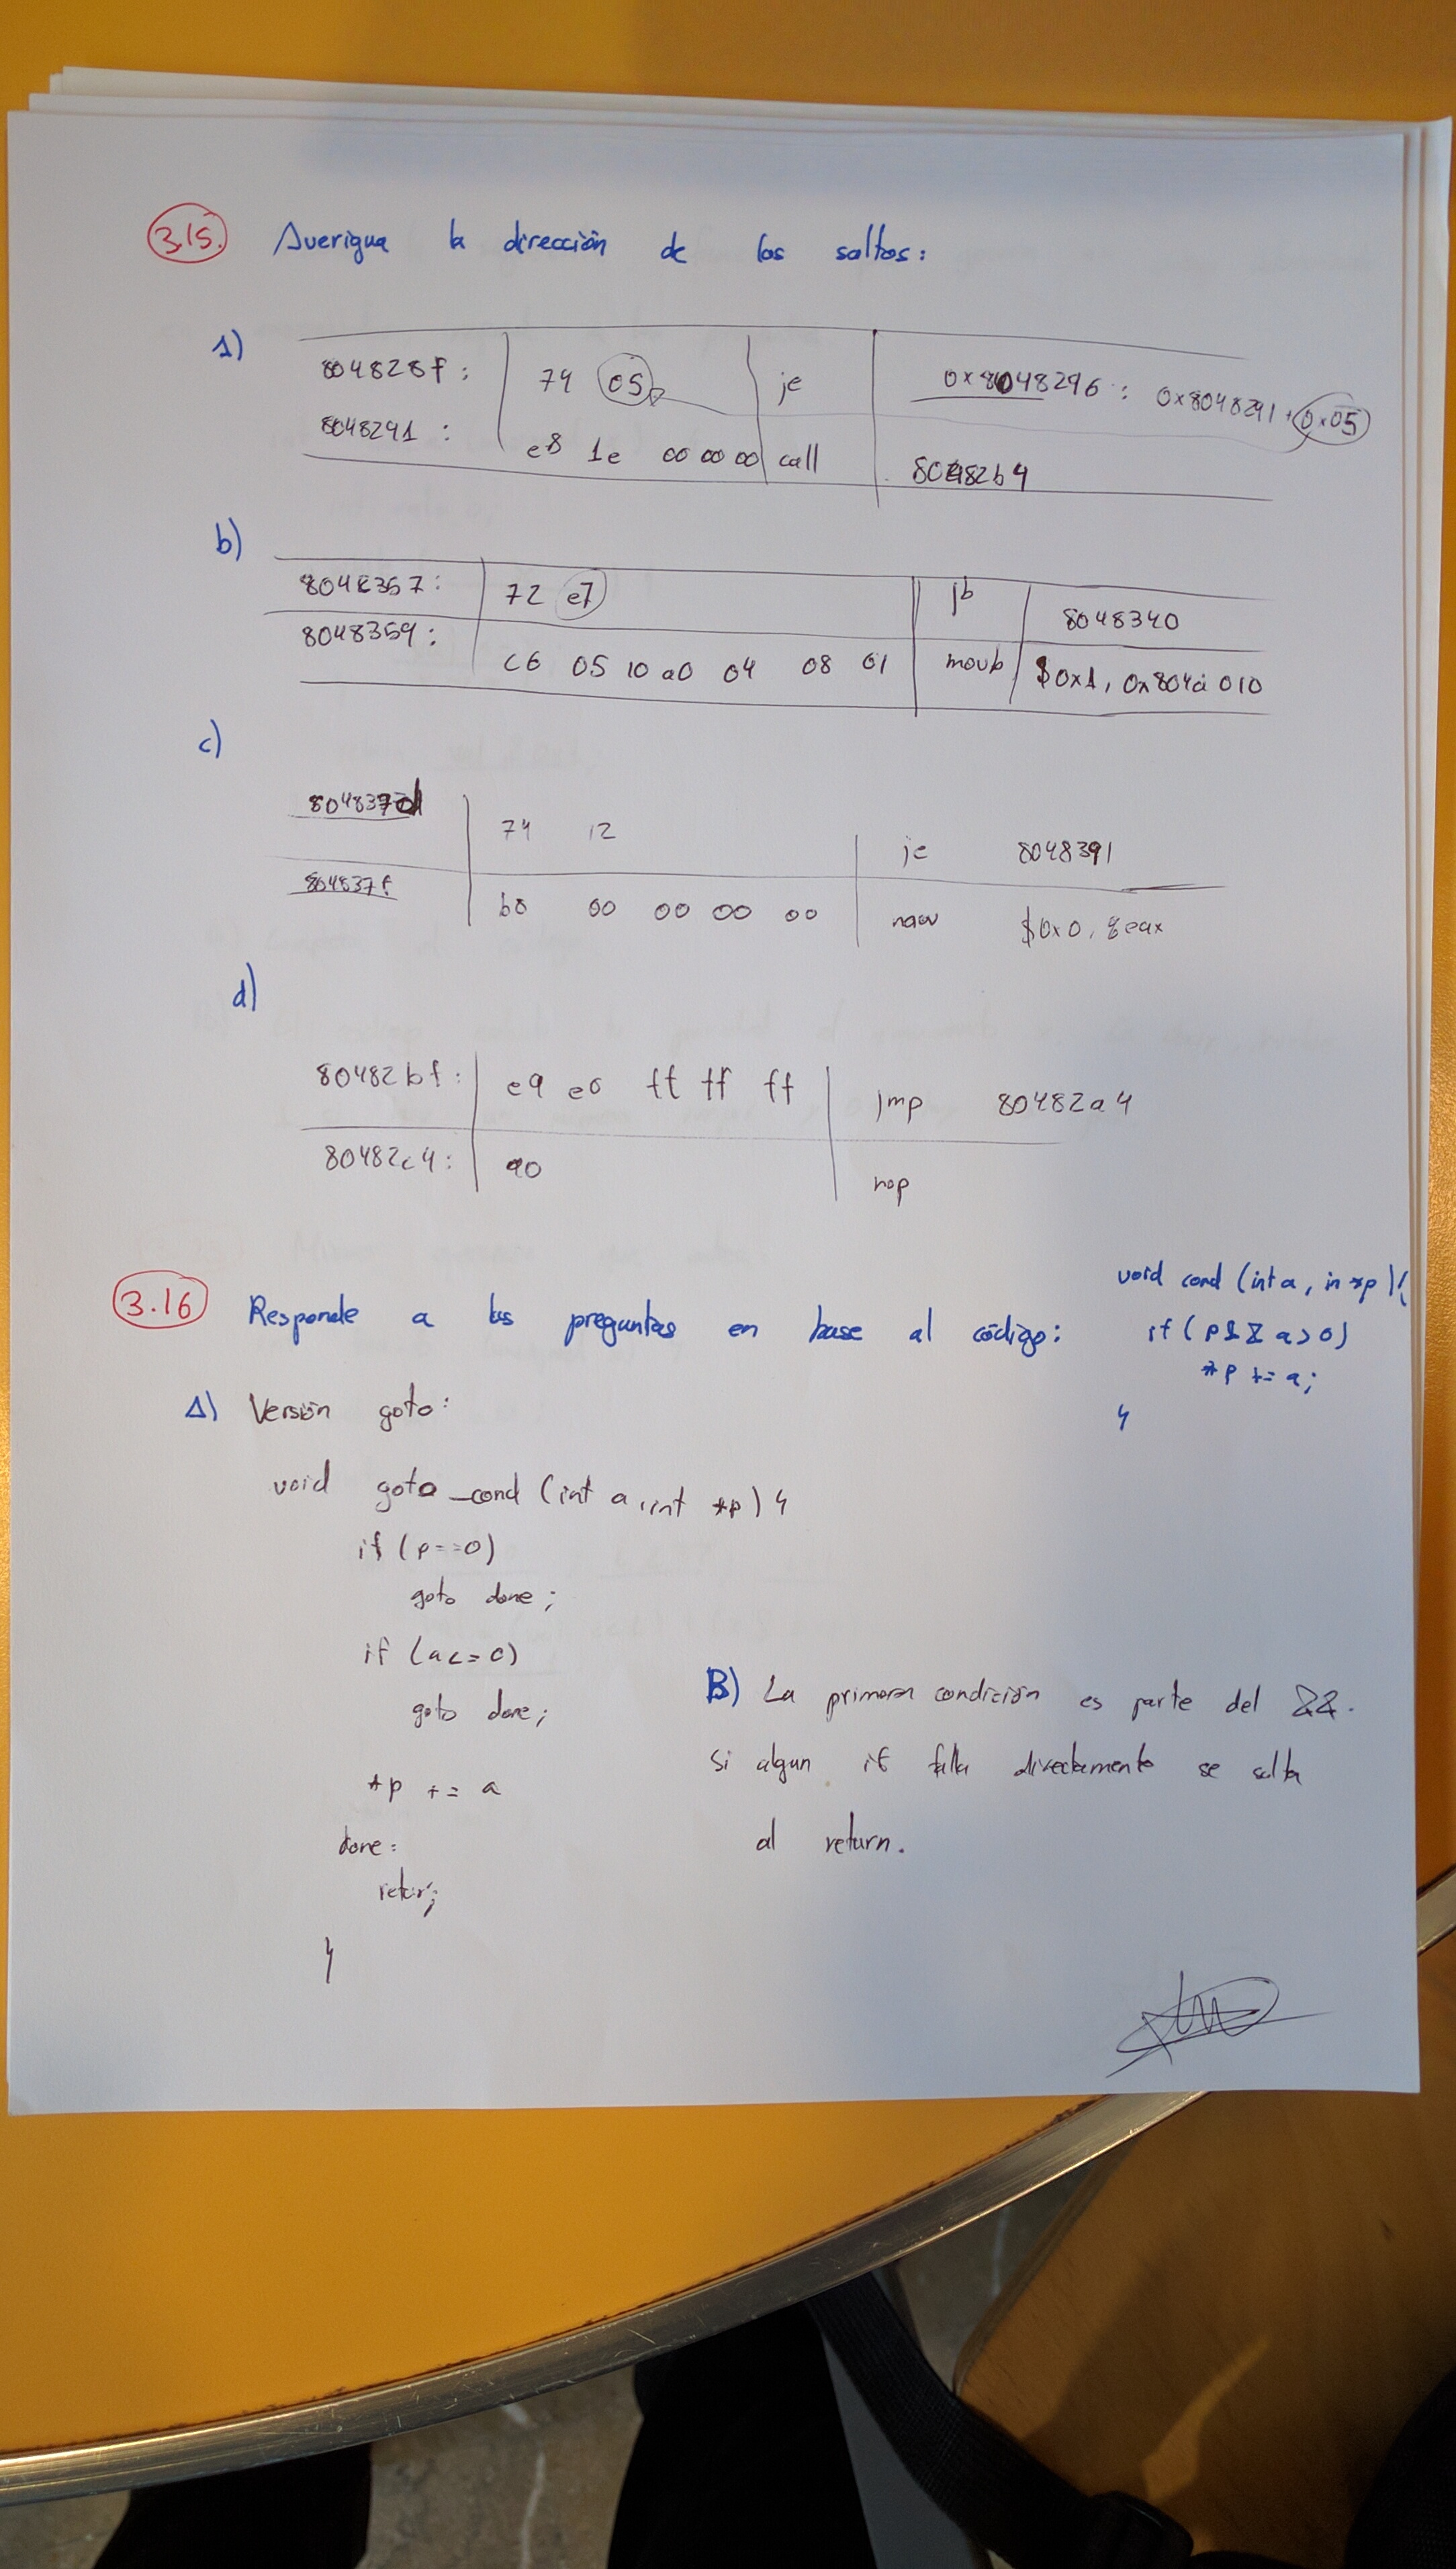 3.15. Averigua la dirección de los saltos:
a)
804828f: 74 05 je 0x8048296: 0x8048291 + 0x05
8048291: e8 1e 00 00 00 call 80482b4
b)
8048357: 72 e7 jb 8048340
8048359: c6 05 10 a0 04 08 01 movb $0x1, 0x804a010
c)
804837d 74 12 je 8048391
804837f b8 00 00 00 00 mov $0x0, %eax
d)
80482bf: e9 e0 ff ff ff jmp 80482a4
80482c4: 90 nop
3.16 Responde a las preguntas en base al código:
void cond (int a, in *p){
if (p && a>0)
*p += a;
}
A) Versión goto:
void goto_cond (int a, int *p) {
if (p==0)
goto done;
if (a<=0)
goto done;
*p += a
done:
retur;
}
B) La primera condición es parte del &&.
Si algun if falla directamente se salta
al return.